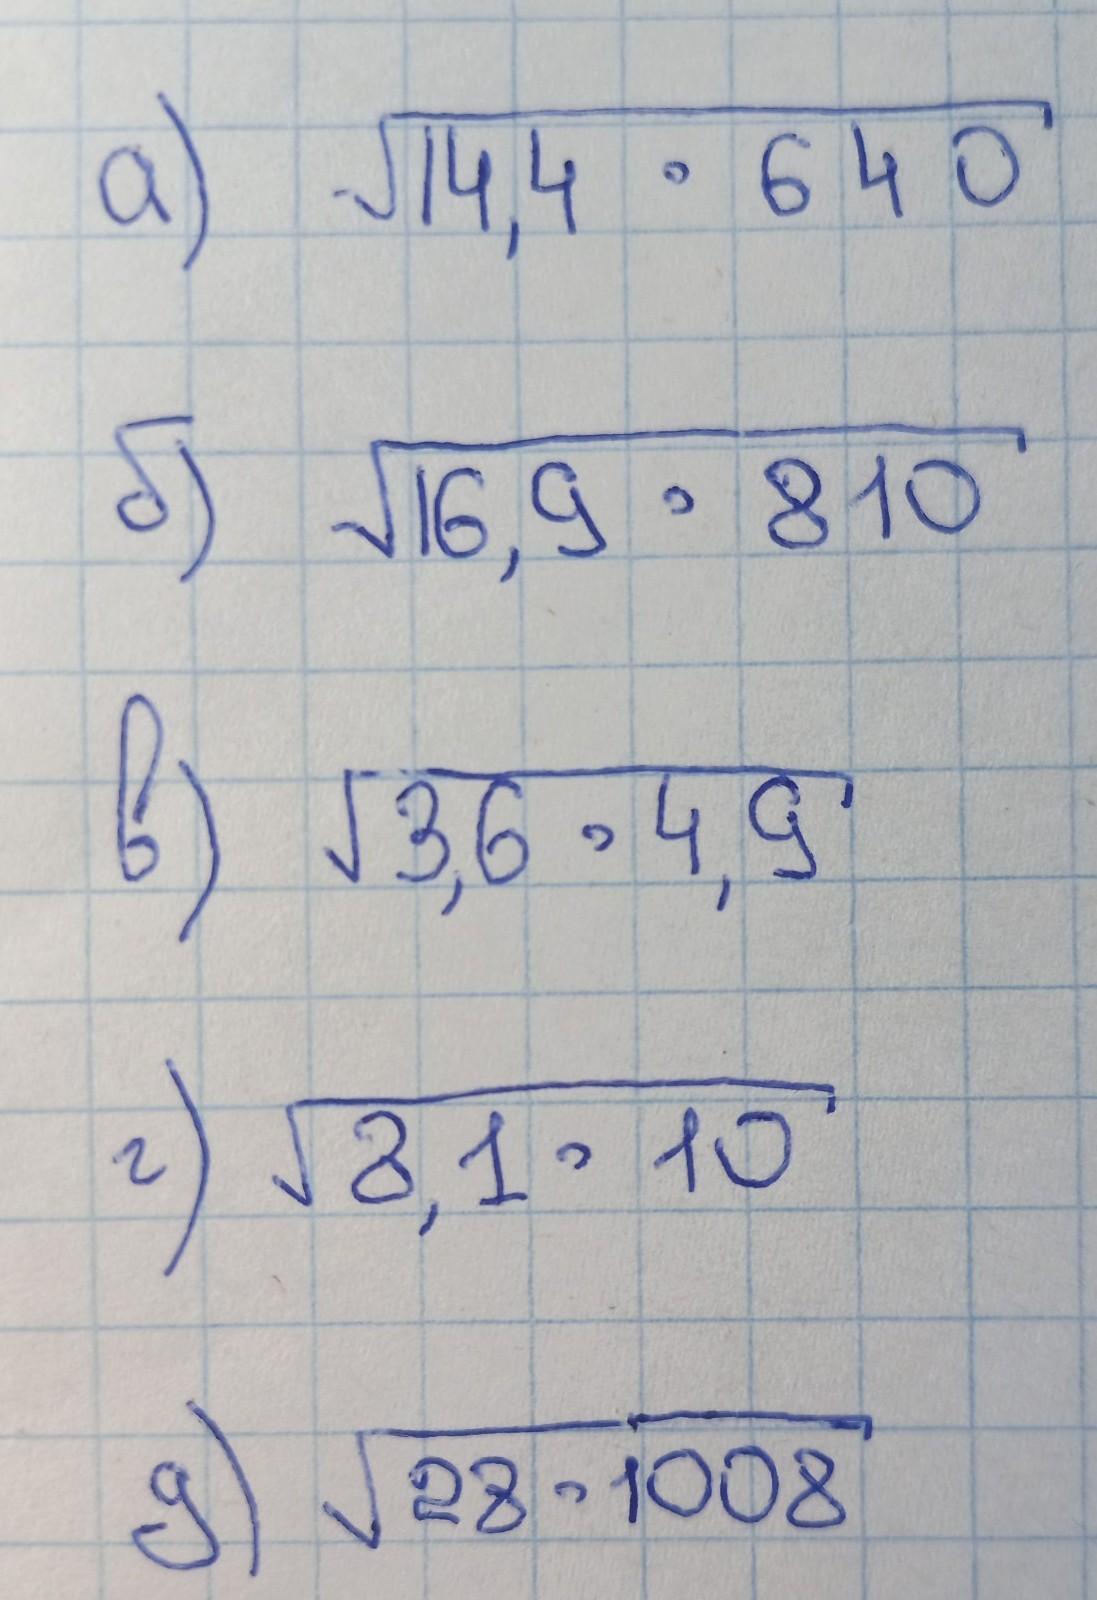 а) √14,4 · 640
б) √16,9 · 810
в) √3,6 · 4,9
г) √8,1 · 10
д) √28 · 1008